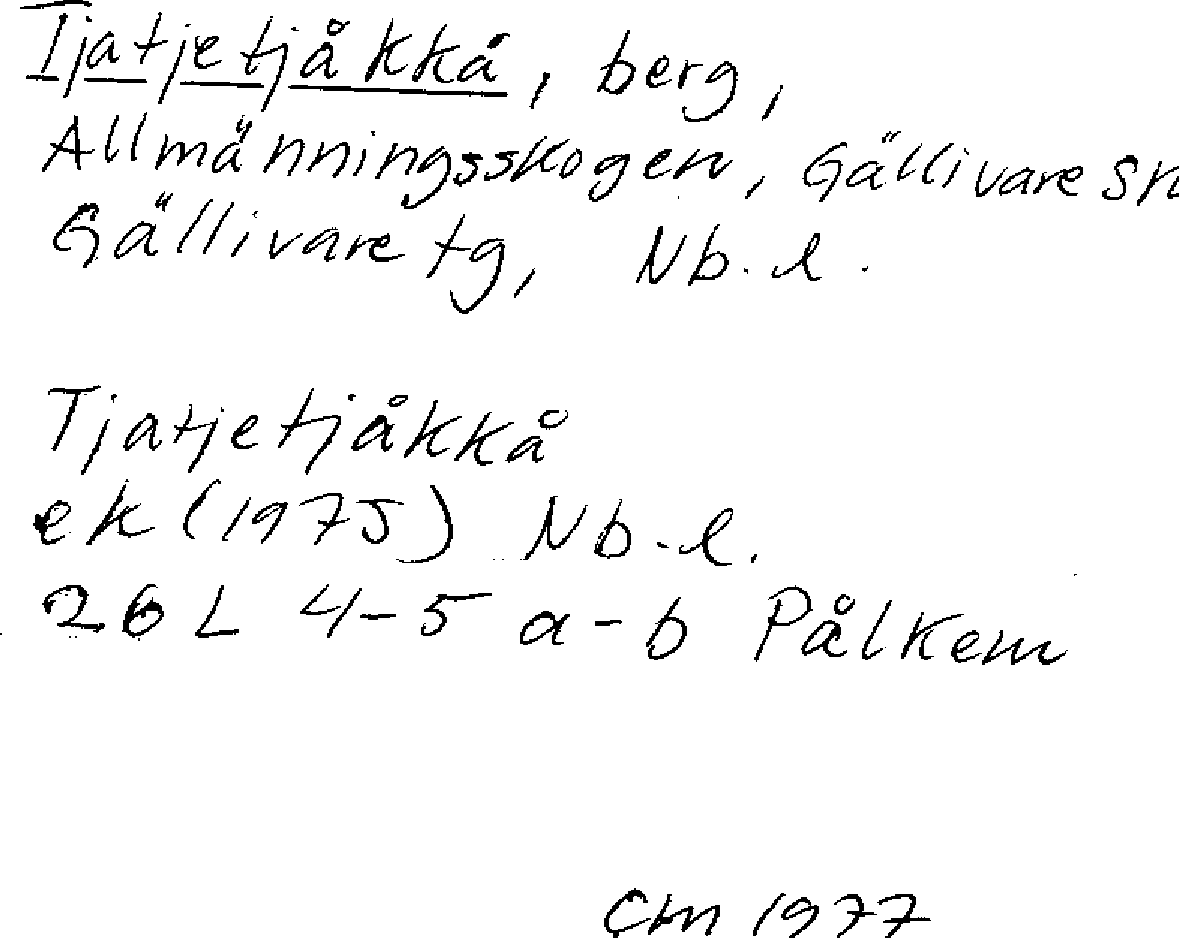 Tjatjetjåkkå, berg,
Allmänningsskogen, Gällivare sn
Gällivare tg, Nb. l.
Tjatjetjåkkå
ek (1975) Nb. l.
26 L 4-5 a-b Pålkem
1977